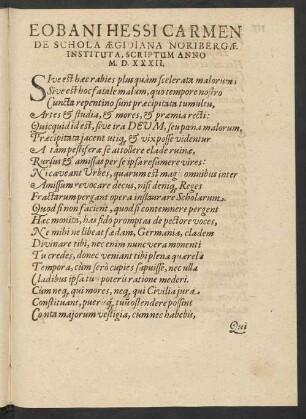 EOBANI HESSI CARMEN
DE SCHOLA ÆGIDIANA NORIBERGÆ
INSTITUTA, SCRIPTUM ANNO
M. D. XXXII.
Sive est hæc rabies plus quàm scelerata malorum,
Sive est hoc fatale malum, quo tempore nostro
Cuncta repentino sunt præcipitata tumultu,
Artes & studia, & mores, & præmia recti:
Quicquid id est, sive ira DEUM, seu pœna malorum,
Præcipitata jacent utiq, & vix posse videntur
A tàm pestifera se attollere clade ruinæ,
Rursus & amissas per se ipsa resumere vires:
Ni caveant Urbes, quarum est mag omnibus inter
Amissum revocare decus, nisi deniq, Reges
Fractarum pergant opera instaurare Scholarum.
Quod si non facient, quod si contemnere pergent
Hæc monita, has fido promptas de pectore voces,
Ne mihi ne libeat fœdam, Germania, cladem
Divinare tibi, nec enim nunc vera monenti
Tu credes, donec veniant tibi plena querelæ
Tempora, cùm serò cupies sapuisse, nec ulla
Cladibus ipsa tu poteris ratione mederi.
Cum neq, qui mores, neq, qui Civilia jura
Constituant, pueriq, tuis ostendere possint
Conta majorum vestigia, cùm nec habebis,
Qui